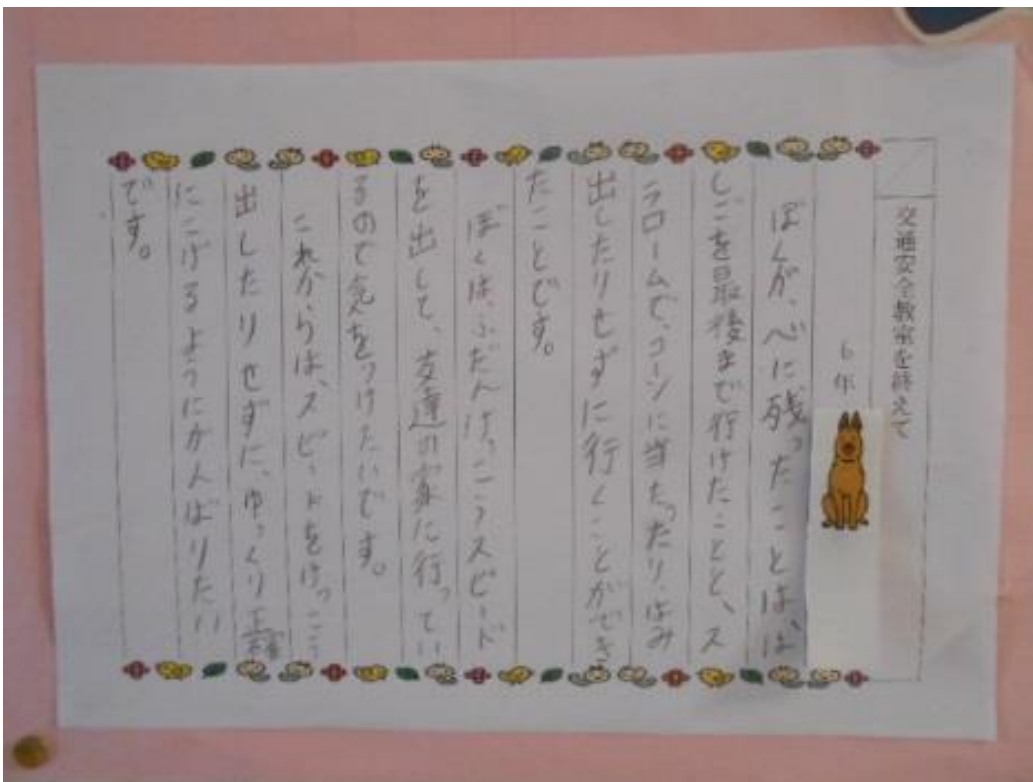 交通安全教室を終えて
6年
ぼくが、心に残ったことは、は
しごを最後まで行けたことと、ス
ラロームで、コーンに当たったり、はみ
出したりせずに行くことができ
たことです。
ぼくは、ふだんけっこうスピード
を出して、友達の家に行ってい
るので気をつけたいです。
これからは、スピードをけっこう
出したりせずに、ゆっくり正確
にこげるようにがんばりたい
です。